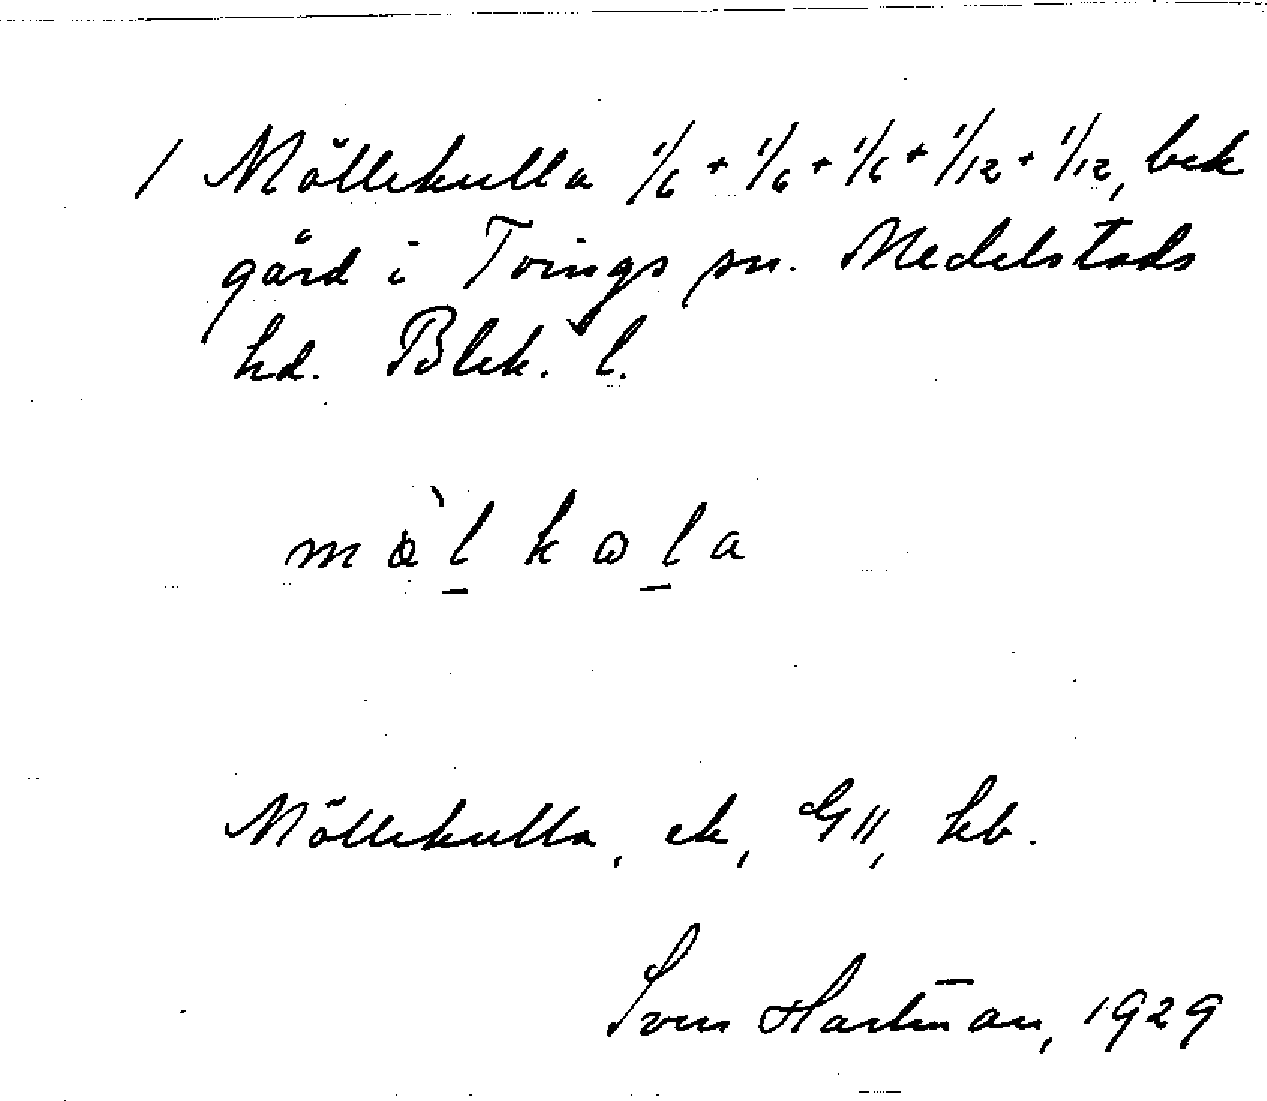 1 Möllekulla 1/6 + 1/6 + 1/6 + 1/12 + 1/12, bek
gård i Tvings sn. Medelstads
hd. Blek. l.
Möllekulla, ek, GII, hb.
Sven Hartman, 1929